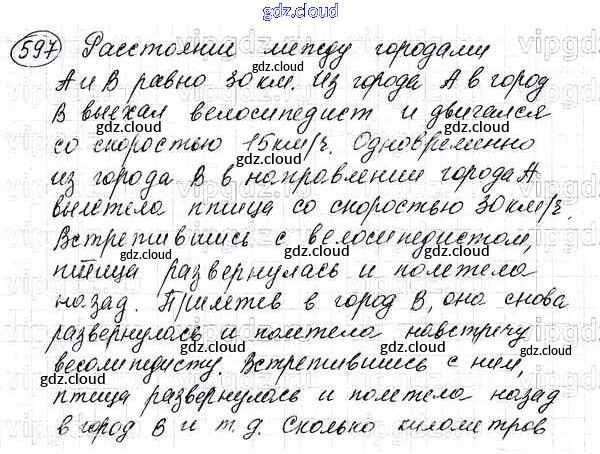 gdz.cloud
597 Расстояние между городами
А и В равно 30 км. Из города А в город
В выехал велосипедист и двигался
со скоростью 15 км/ч. Одновременно
из города В в направлении города А
вылетела птица со скоростью 30 км/ч.
Встретившись с велосипедистом,
птица развернулась и полетела
назад. Прилетев в город В, она снова
развернулась и полетела навстречу
весолипедисту. Встретившись с ним,
птица развернулась и полетела назад
в город В и т. д. Сколько километров